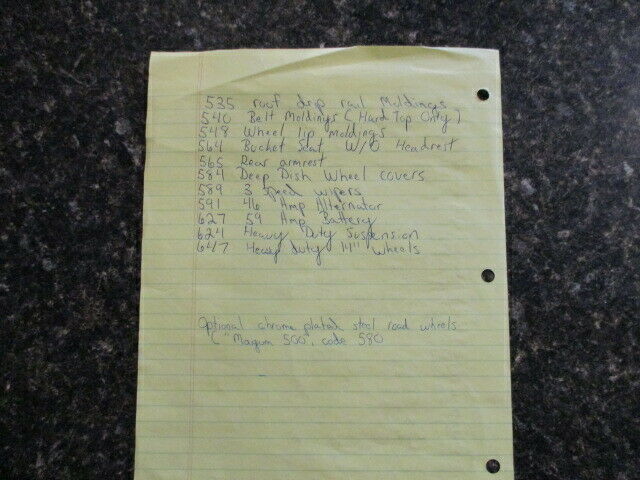 535 roof drip rail Moldings
540 Belt Moldings (Hard Top Only)
548 Wheel lip moldings
564 Bucket seat W/O Headrest
565 Rear armrest
584 Deep Dish Wheel covers
589 3 speed wipers
591 46 Amp Alternator
627 59 Amp Battery
624 Heavy Duty Suspension
647 Heavy duty 14" wheels
Optional chrome plated steel road wheels
( "Magum 500", code 580